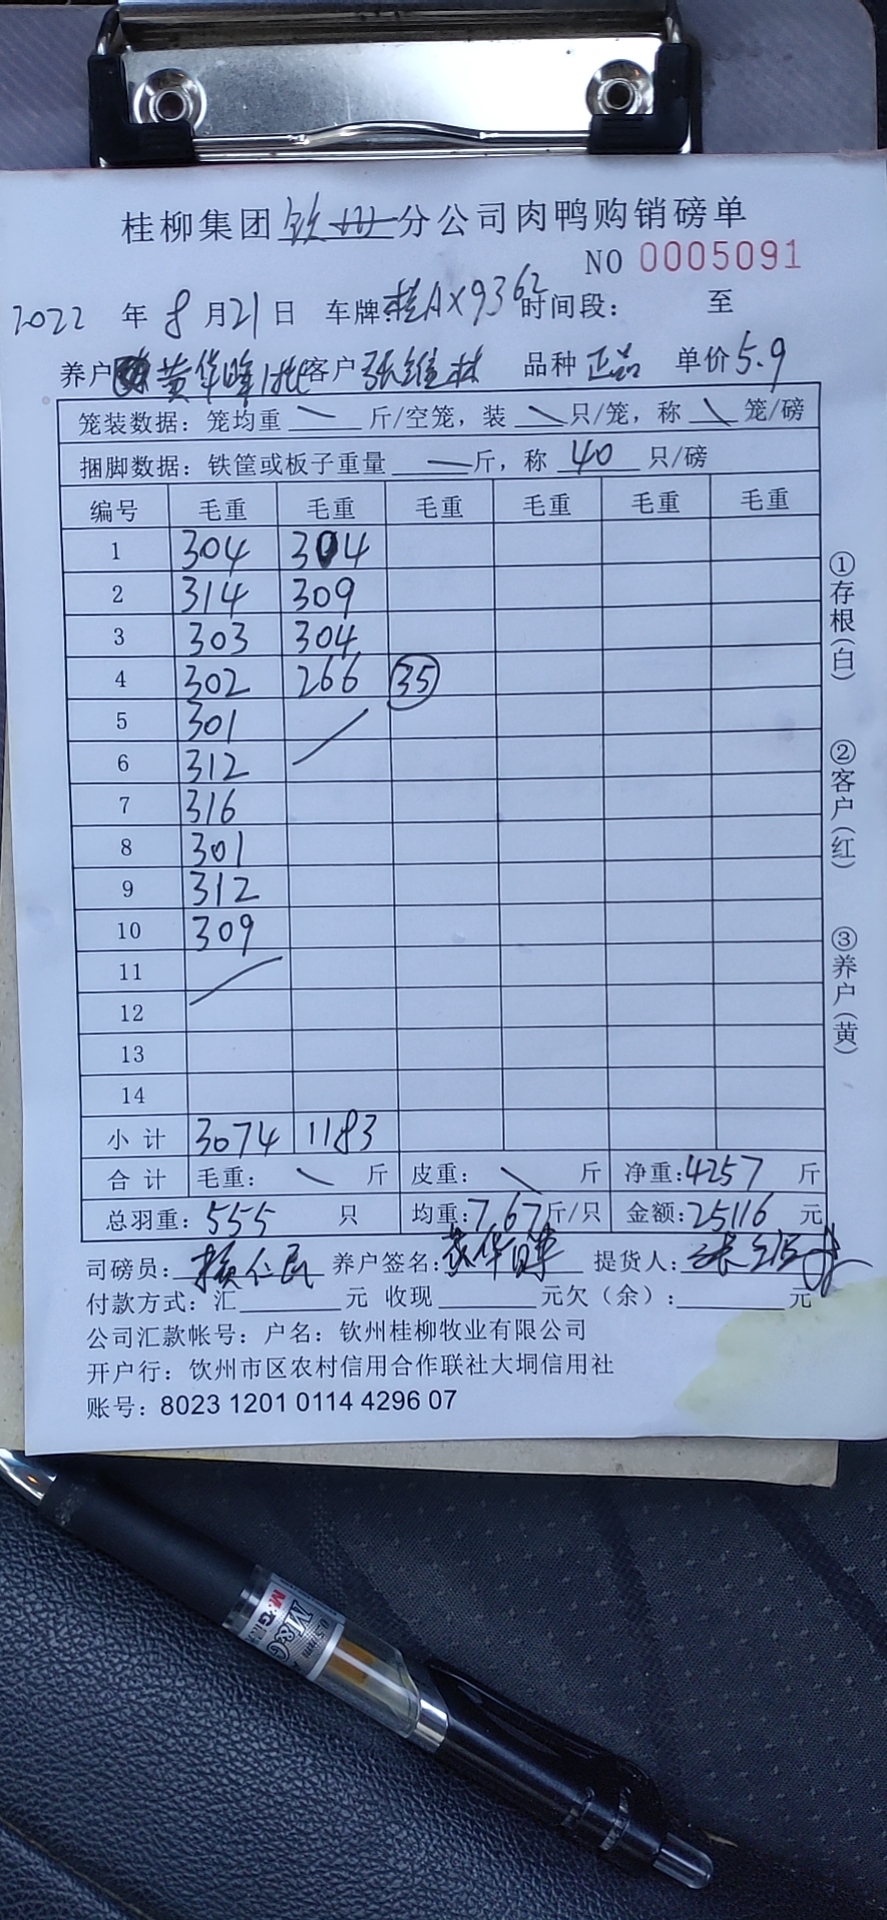 桂柳集团钦州分公司肉鸭购销磅单
NO 0005091
2022 年 8 月 21 日 车牌:桂AX9362 时间段: 至
养户 黄华晖1批 客户 张维林 品种 正品 单价 5.9
笼装数据: 笼均重 斤/空笼, 装 只/笼, 称 笼/磅
捆脚数据: 铁筐或板子重量 斤, 称 40 只/磅
编号 毛重 毛重 毛重 毛重 毛重 毛重
1 304 304
2 314 309
3 303 304
4 302 266 35
5 301
6 312
7 316
8 301
9 312
10 309
11
12
13
14
小计 3074 1183
合计 毛重: 斤 皮重: 斤 净重:4257 斤
总羽重: 555 只 均重:7.67斤/只 金额:25116 元
司磅员: 养户签名:黄华晖 提货人:张维林
付款方式: 汇 元 收现 元欠(余): 元
公司汇款帐号: 户名: 钦州桂柳牧业有限公司
开户行: 钦州市区农村信用合作联社大垌信用社
账号: 8023 1201 0114 4296 07
①存根(白)
②客户(红)
③养户(黄)
M&G
0.5mm